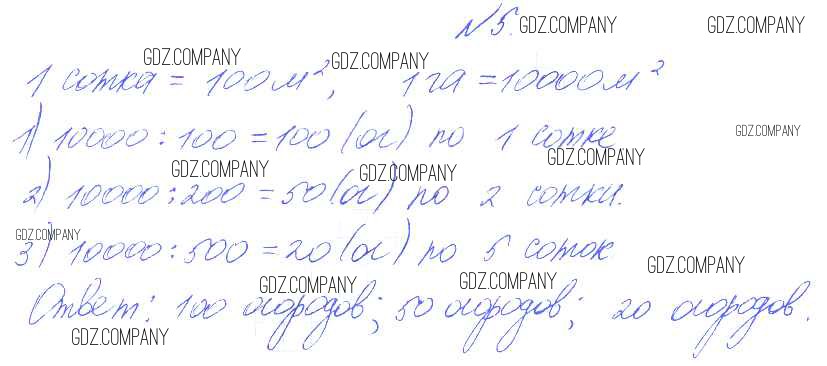 №5. GDZ.COMPANY GDZ.COMPANY
GDZ.COMPANY GDZ.COMPANY
1 сотка = 100 м², 1 га = 10000 м²
1) 10000 : 100 = 100 (ог) по 1 сотке GDZ.COMPANY
GDZ.COMPANY GDZ.COMPANY GDZ.COMPANY
2) 10000 : 200 = 50 (ог) по 2 сотки.
GDZ.COMPANY
3) 10000 : 500 = 20 (ог) по 5 соток
GDZ.COMPANY GDZ.COMPANY GDZ.COMPANY
Ответ: 100 огородов; 50 огородов; 20 огородов.
GDZ.COMPANY